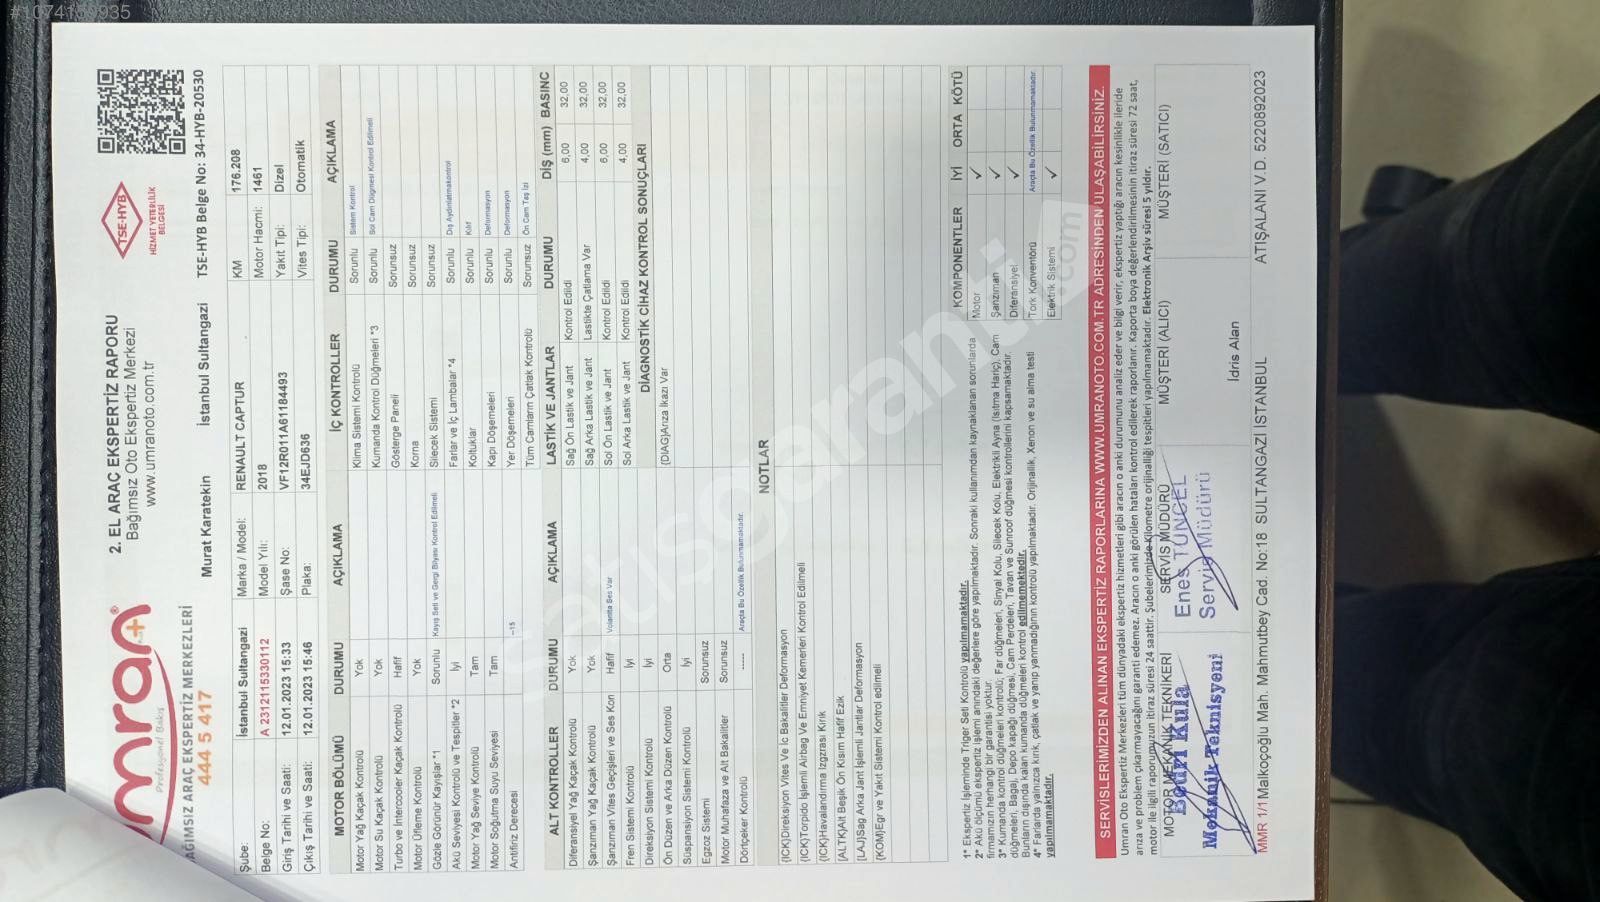 #1074159935
2. EL ARAÇ EKSPERTİZ RAPORU
Bağımsız Oto Ekspertiz Merkezi
www.umranoto.com.tr
umran+
Profesyonel Bakış
BAĞIMSIZ ARAÇ EKSPERTİZ MERKEZLERİ
444 5 417
TSE-HYB
HİZMET YETERLİLİK
BELGESİ
Murat Karatekin İstanbul Sultangazi TSE-HYB Belge No: 34-HYB-20530
Şube: İstanbul Sultangazi Marka / Model: RENAULT CAPTUR KM 176.208
Belge No: A 231211530112 Model Yılı: 2018 Motor Hacmi: 1461
Giriş Tarihi ve Saati: 12.01.2023 15:33 Şase No: VF12R011A61184493 Yakıt Tipi: Dizel
Çıkış Tarihi ve Saati: 12.01.2023 15:46 Plaka: 34EJD636 Vites Tipi: Otomatik
MOTOR BÖLÜMÜ DURUMU AÇIKLAMA
Motor Yağ Kaçak Kontrolü Yok
Motor Su Kaçak Kontrolü Yok
Turbo ve Intercooler Kaçak Kontrolü Hafif
Motor Üfleme Kontrolü Yok
Gözle Görünür Kayışlar *1 Sorunlu Kayış Seti ve Gergi Bilyası Kontrol Edilmeli
Akü Seviyesi Kontrolü ve Tespitler *2 İyi
Motor Yağ Seviye Kontrolü Tam
Motor Soğutma Suyu Seviyesi Tam
Antifiriz Derecesi -15
İÇ KONTROLLER DURUMU AÇIKLAMA
Klima Sistemi Kontrolü Sorunlu Sistem Kontrol
Kumanda Kontrol Düğmeleri *3 Sorunlu Sol Cam Düğmesi Kontrol Edilmeli
Gösterge Paneli Sorunsuz
Korna Sorunsuz
Silecek Sistemi Sorunsuz
Farlar ve İç Lambalar *4 Sorunlu Dış Aydınlatmakontrol
Koltuklar Sorunlu Kılıf
Kapı Döşemeleri Sorunlu Deformasyon
Yer Döşemeleri Sorunlu Deformasyon
Tüm Camların Çatlak Kontrolü Sorunsuz Ön Cam Taş İzi
ALT KONTROLLER DURUMU AÇIKLAMA
Diferansiyel Yağ Kaçak Kontrolü Yok
Şanzıman Yağ Kaçak Kontrolü Yok
Şanzıman Vites Geçişleri ve Ses Kon Hafif Volantta Ses Var
Fren Sistemi Kontrolü İyi
Direksiyon Sistemi Kontrolü İyi
Ön Düzen ve Arka Düzen Kontrolü Orta
Süspansiyon Sistemi Kontrolü İyi
Egzoz Sistemi Sorunsuz
Motor Muhafaza ve Alt Bakalitler Sorunsuz
Dörtçeker Kontrolü ----- Araçta Bu Özellik Bulunmamaktadır.
LASTİK VE JANTLAR DURUMU DİŞ (mm) BASINC
Sağ Ön Lastik ve Jant Kontrol Edildi 6,00 32,00
Sağ Arka Lastik ve Jant Lastikte Çatlama Var 4,00 32,00
Sol Ön Lastik ve Jant Kontrol Edildi 6,00 32,00
Sol Arka Lastik ve Jant Kontrol Edildi 4,00 32,00
DİAGNOSTİK CİHAZ KONTROL SONUÇLARI
(DIAG)Arıza İkazı Var
NOTLAR
(ICK)Direksiyon Vites Ve İc Bakalitler Deformasyon
(ICK)Torpido İşlemli Airbag Ve Emniyet Kemerleri Kontrol Edilmeli
(ICK)Havalandırma Izgzrası Kırık
(ALTK)Alt Beşik Ön Kısım Hafif Ezik
(LAJ)Sag Arka Jant İşlemli Jantlar Deformasyon
(KOM)Egr ve Yakıt Sistemi Kontrol edilmeli
1* Ekspertiz İşleminde Triger Seti Kontrolü yapılmamaktadır.
2* Akü ölçümü ekspertiz işlemi anındaki değerlere göre yapılmaktadır. Sonraki kullanımdan kaynaklanan sorunlarda
firmamızın herhangi bir garantisi yoktur.
3* Kumanda kontrol düğmeleri kontrolü; Far düğmeleri, Sinyal Kolu, Silecek Kolu, Elektrikli Ayna (Isıtma Hariç), Cam
düğmeleri, Bagaj, Depo kapağı düğmesi, Cam Perdeleri, Tavan ve Sunroof düğmesi kontrollerini kapsamaktadır.
Bunların dışında kalan kumanda düğmeleri kontrol edilmemektedir.
4* Farlarda yalnızca kırık, çatlak ve yanıp yanmadığının kontrolü yapılmaktadır. Orijinallik, Xenon ve su alma testi
yapılmamaktadır.
KOMPONENTLER İYİ ORTA KÖTÜ
Motor ✓
Şanzıman ✓
Diferansiyel ✓
Tork Konvertörü Araçta Bu Özellik Bulunmamaktadır.
Elektrik Sistemi ✓
SERVİSLERİMİZDEN ALINAN EKSPERTİZ RAPORLARINA WWW.UMRANOTO.COM.TR ADRESİNDEN ULAŞABİLİRSİNİZ.
Umran Oto Ekspertiz Merkezleri tüm dünyadaki ekspertiz hizmetleri gibi aracın o anki durumunu analiz eder ve bilgi verir, ekspertiz yaptığı aracın kesinlikle ileride
arıza ve problem çıkarmayacağını garanti edemez. Aracın o anki görülen hataları kontrol edilerek raporlanır. Kaporta boya değerlendirilmesinin itiraz süresi 72 saat,
motor ile ilgili raporumuzun itiraz süresi 24 saattir. Şubelerimizde Kilometre orijinalliği tespitleri yapılmamaktadır. Elektronik Arşiv süresi 5 yıldır.
MOTOR MEKANİK TEKNİKERİ SERVİS MÜDÜRÜ MÜŞTERİ (ALICI) MÜŞTERİ (SATICI)
Bedri Kula
Mekanik Teknisyeni
Enes TUNCEL
Servis Müdürü
İdris Alan
MMR 1/1 Malkoçoğlu Mah. Mahmutbey Cad. No:18 SULTANGAZİ İSTANBUL ATIŞALANI V.D. 5220892023
satışgaranti
.com